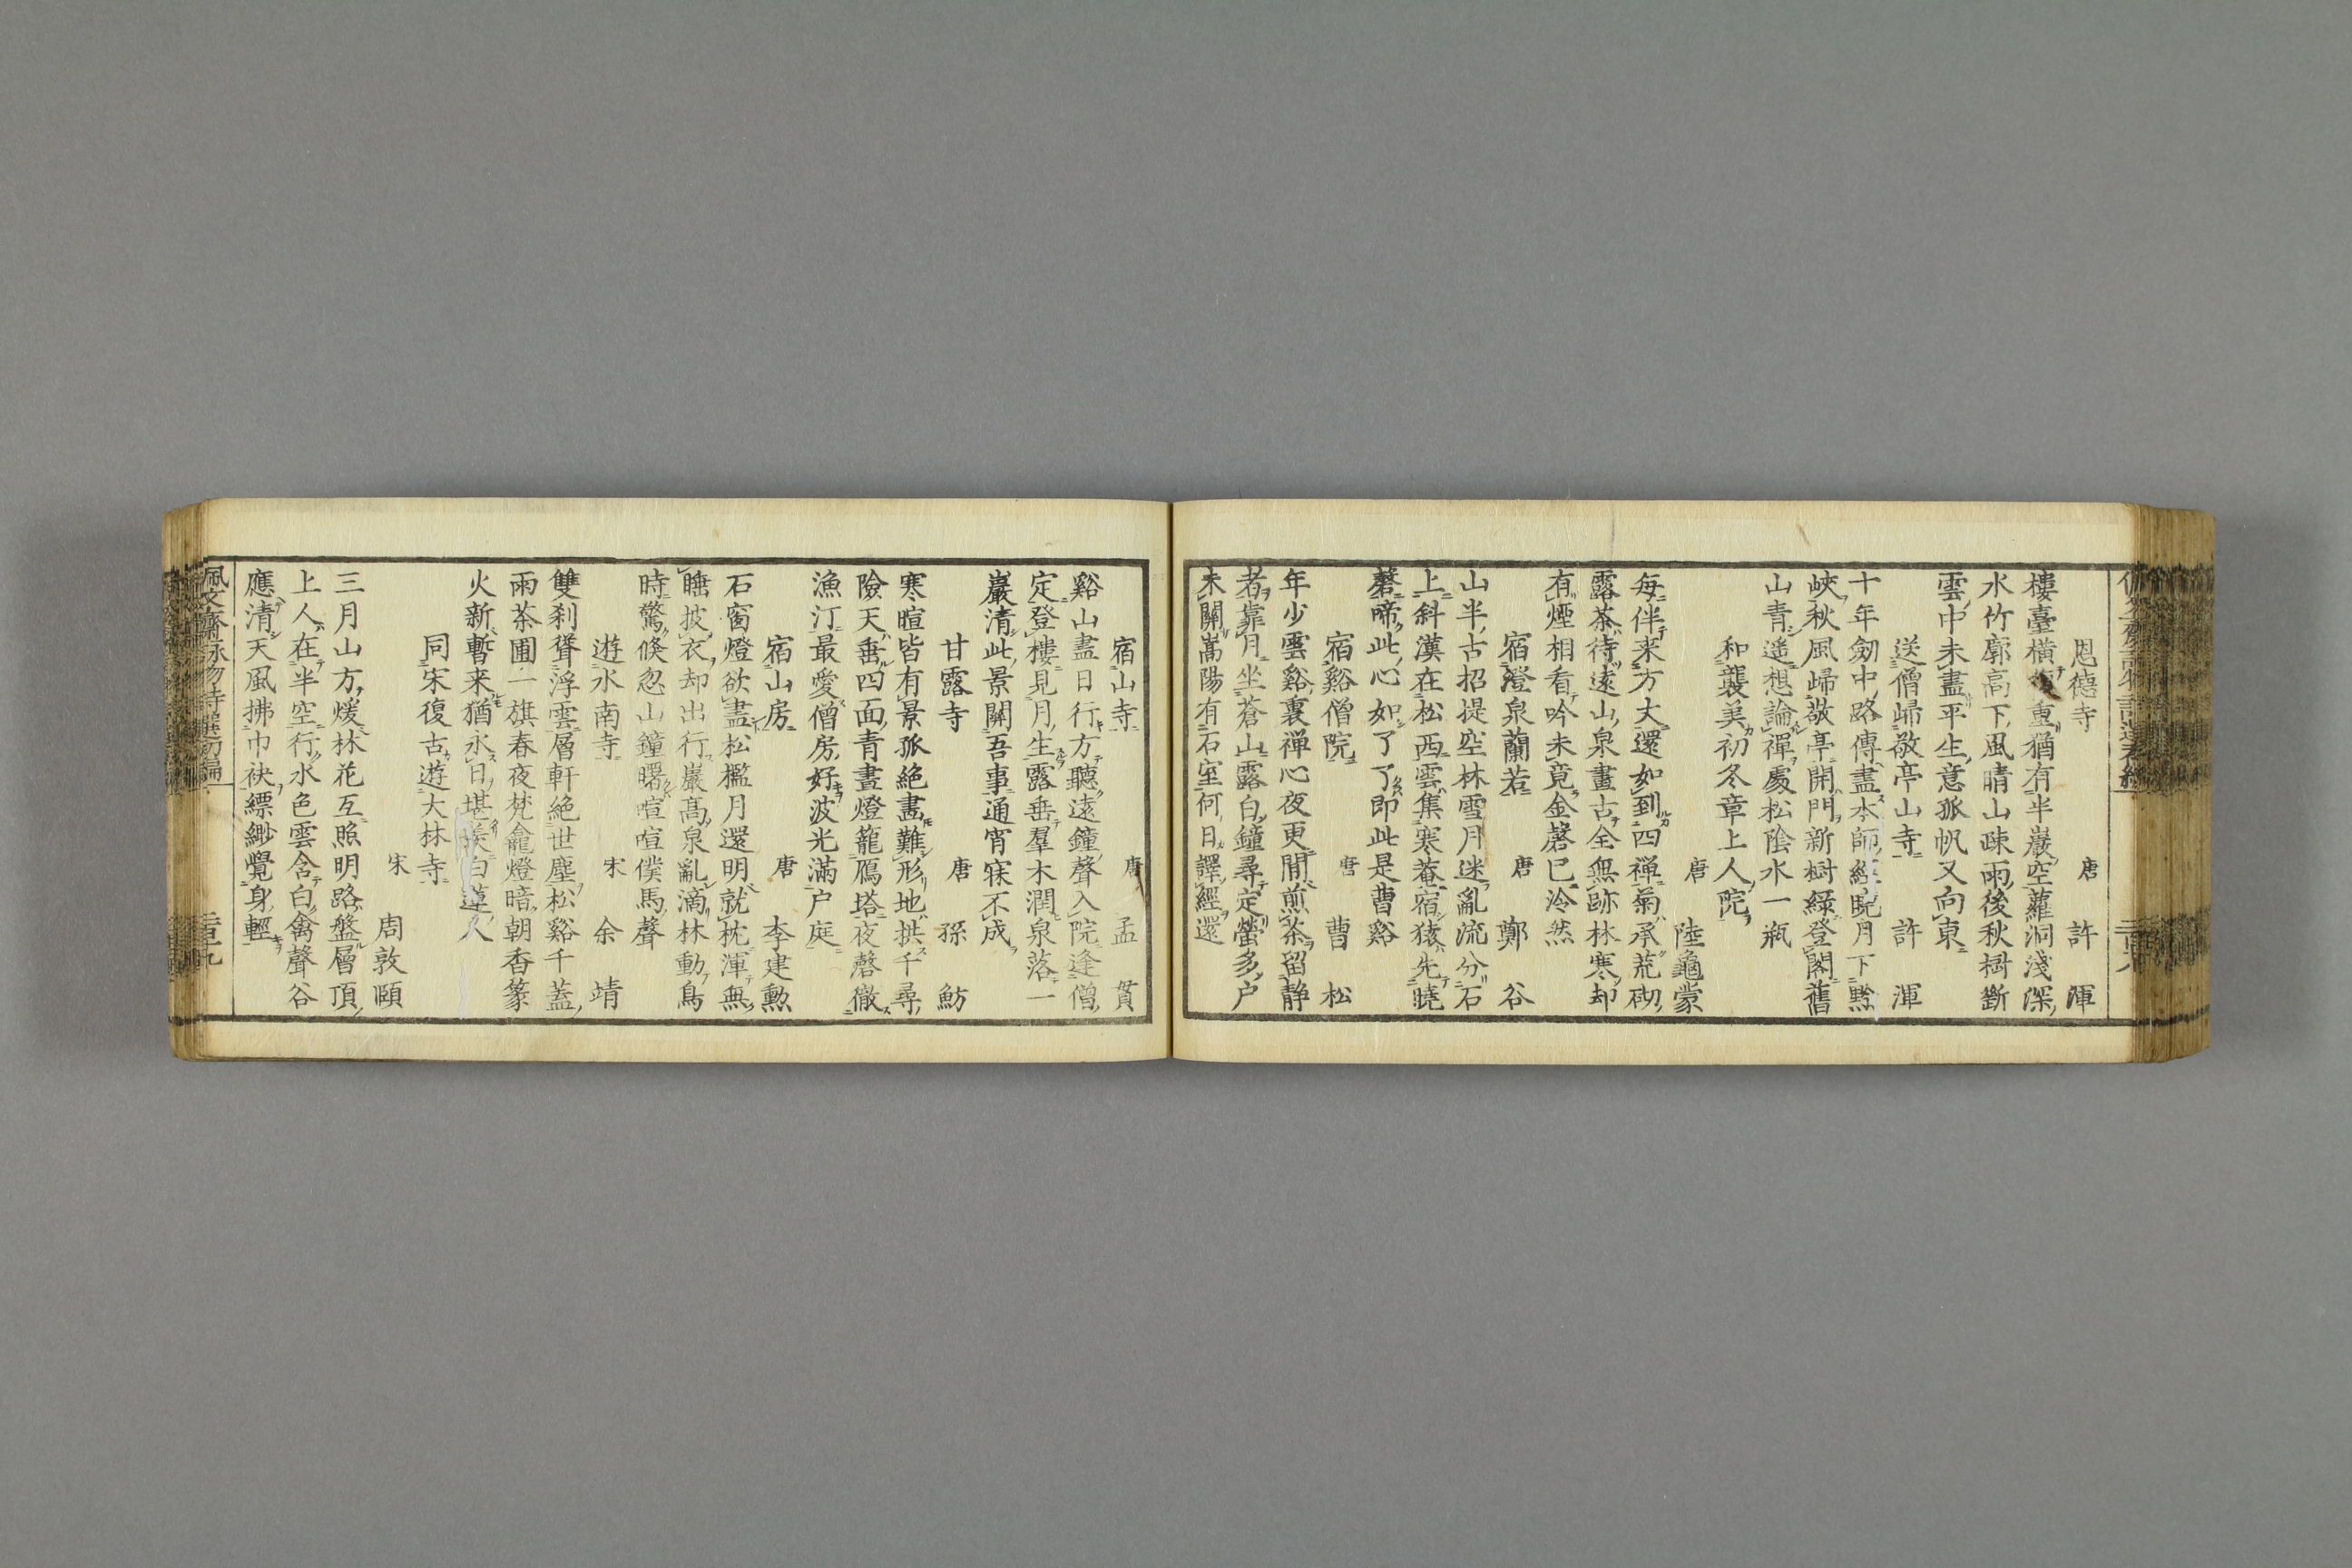 恩德寺 唐 許渾
樓臺橫 重猶有半巖空蘿洞淺深
水竹廓高下風晴山疎雨後秋樹斷
雲中未盡平生意孤帆又向東
送僧歸敬亭山寺 許渾
十年劒中路傳盡本師經曉月下黔
峽秋風歸敬亭開門新樹綠登閣舊
山青遙想論禪處松陰水一瓶
和襲美初冬章上人院
唐 陸龜蒙
每伴来方丈還如到四禪菊承荒砌
露茶待遠山泉畫古全無跡林寒却
有煙相看吟未竟金磬已泠然
宿澄泉蘭若 唐 鄭谷
山半古招提空林雪月迷亂流分石
上斜漢在松西雲集寒菴宿猿先曉
磬啼此心如了了即此是曹谿
宿谿僧院 唐 曹松
年少雲谿裏禪心夜更閒煎茶留静
者靠月坐蒼山露白鐘尋定螢多户
未關嵩陽有石室何日譯經還
宿山寺 唐 孟貫
谿山盡日行方聽遠鐘聲入院逢僧
定登樓見月生露垂羣木潤泉落一
巖清此景關吾事通宵寐不成
甘露寺 唐 孫魴
寒暄皆有景孤絶畫難形地拱千尋
險天垂四面青晝燈籠鴈塔夜磬徹
漁汀最愛僧房好波光滿户庭
宿山房 唐 李建勲
石窗燈欲盡松檻月還明就枕渾無
睡披衣却出行巖髙泉亂滴林動鳥
時驚倐忽山鐘曙喧喧僕馬聲
遊水南寺 宋 余靖
雙刹聳浮雲層軒絶世塵松谿千蓋
雨茶圃一旗春夜梵龕燈暗朝香篆
火新暫来猶永日堪羨白蓮人
同宋復古遊大林寺
宋 周敦頤
三月山方煖林花互照明路盤層頂
上人在半空行水色雲含白禽聲谷
應清天風拂巾袂縹緲覺身輕
佩文齋詠物詩選初編